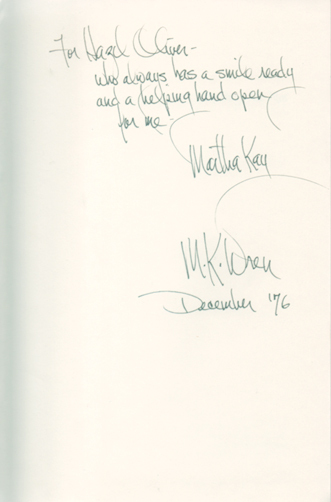 For Hazel Oliver-
who always has a smile ready
and a helping hand open
for me-
Martha Kay
M.K. Wren
December '76